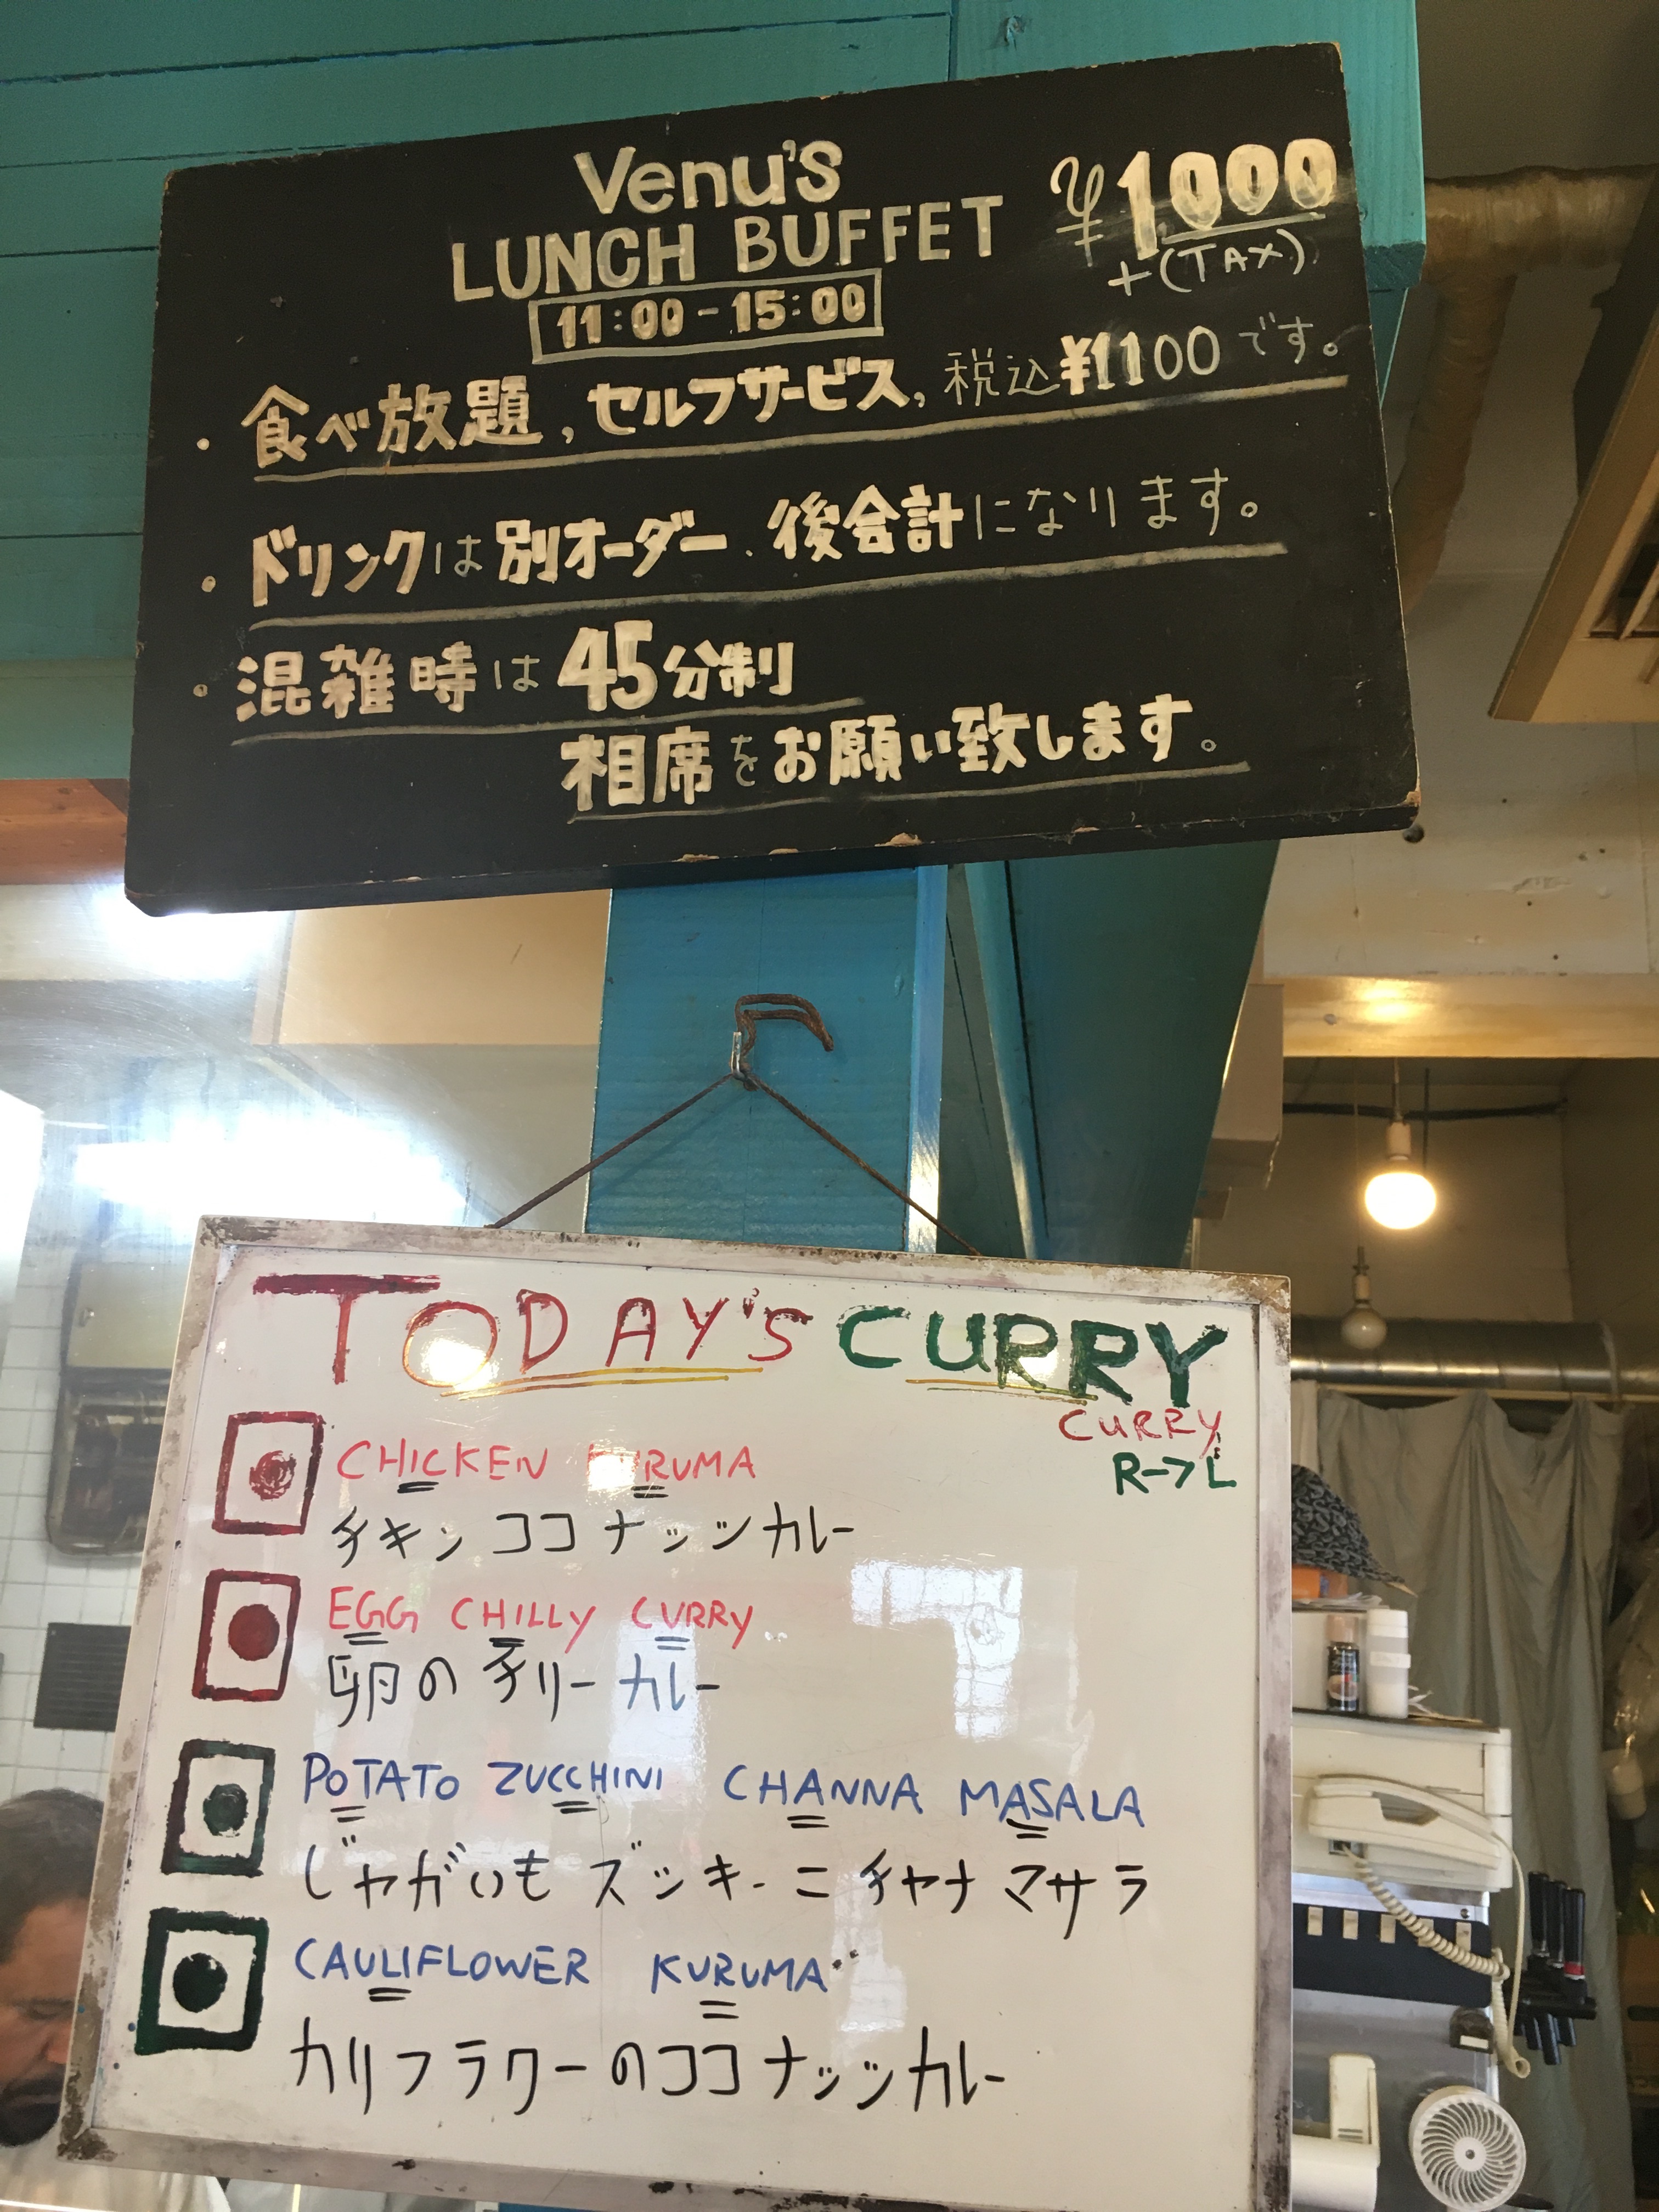 Venu's
LUNCH BUFFET
¥1000
+(TAX)
11:00-15:00
・食べ放題,セルフサービス,税込¥1100です。
・ドリンクは別オーダー.後会計になります。
・混雑時は45分制
相席をお願い致します。
TODAY'S CURRY
CURRY
R→L
CHICKEN KURUMA
チキンココナッツカレー
EGG CHILLY CURRY
卵のチリーカレー
POTATO ZUCCHINI CHANNA MASALA
じゃがいもズッキーニチャナマサラ
CAULIFLOWER KURUMA
カリフラワーのココナッツカレー